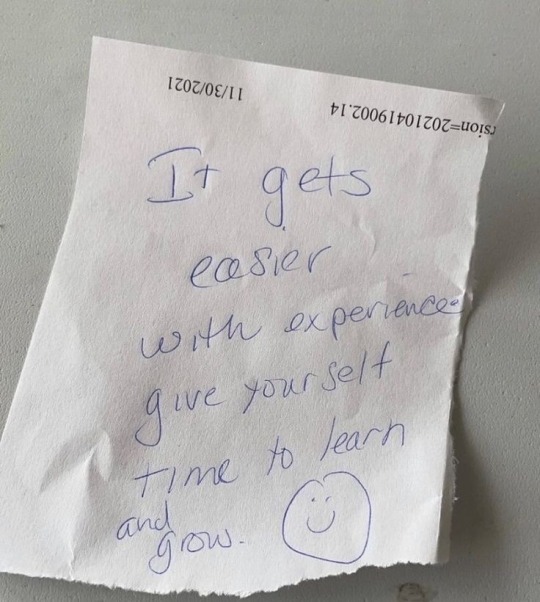 11/30/2021 rsion=20210419002.14
It gets
easier
with experience
give yourself
time to learn
and
grow.